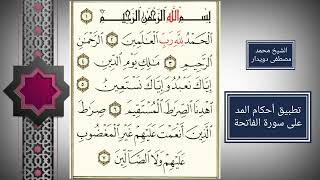 بِسْمِ اللَّهِ الرَّحْمَٰنِ الرَّحِيمِ ١
الْحَمْدُ لِلَّهِ رَبِّ الْعَالَمِينَ ٢ الرَّحْمَٰنِ
الرَّحِيمِ ٣ مَالِكِ يَوْمِ الدِّينِ ٤
إِيَّاكَ نَعْبُدُ وَإِيَّاكَ نَسْتَعِينُ ٥
اهْدِنَا الصِّرَاطَ الْمُسْتَقِيمَ ٦ صِرَاطَ
الَّذِينَ أَنْعَمْتَ عَلَيْهِمْ غَيْرِ الْمَغْضُوبِ
عَلَيْهِمْ وَلَا الضَّالِّينَ ٧
الشيخ محمد
مصطفى دويدار
تطبيق أحكام المد
على سورة الفاتحة